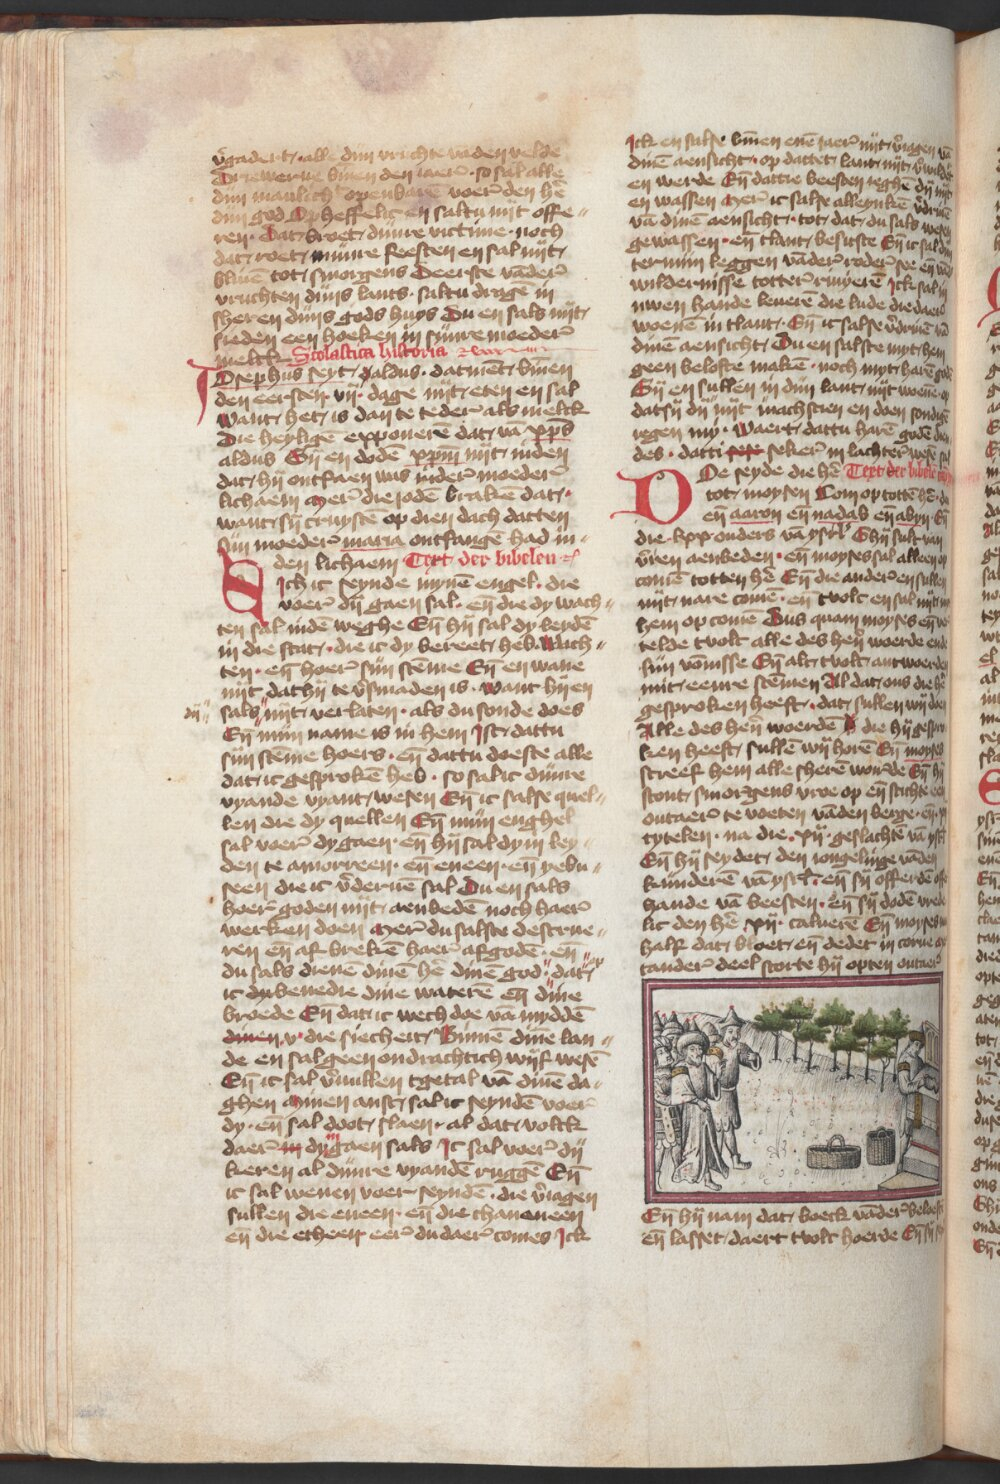 v̄gadert · alle dijn vrichte vaden velde
Driewerue binen den iaer̄ · so sal alle
dijn manlich openbarē voer̄ den hē
dijn god Op heffelic en saltu nijt offe-
ren · Dat broet dijnre victime · noch
dat roet mijnre feesten en sal nijt
bliuē tot smorgens Deerste vāder̄
vruchten dijns lants · saltu dragē in
sheren dijns gods huys Du en sals nijt
sieden een hoeken in sijnre moeder̄
melck Scolastica historia
Josephus seyt aldus · datmēt binen
den eersten · vij · dage nijt eten en sal
Want het is dan te teder als melck
Die heyligē exponerē dat vā xp̄s
aldus Gij en dodē xp̄m nijt inden
dat hij ontfaen was inder̄ moeder̄
lichaem Mer̄ die iodē brakē dat ·
want sij cruystē op dien dach datten
sijn moeder̄ maria ontfangē had in-
den lichaem Text der bibelen
Sich ic seynde mynē engel · die
voer̄ dij gaen sal · eñ die dy wach-
ten sal indē weghe Eñ hij sal dy leydē
in die stat · die ic dy bereet heb Wach-
ten · eñ hoer̄ sijn stēme Eñ en wane
nijt dat hij te v̄smaden is · want hij en
dij
sals nijt verlaten · als du sonde does
Eñ mijn name is in hem Ist dattu
sijn stēme hoers · eñ dattu doeste alle
dat ic gesprokē heb · so sal ic dijnre
vyande vyant wesen Eñ ic salse quel-
len die dy quellen Eñ mijn enghel
sal voer̄ dy gaen · eñ hij sal dy in ley-
den te amorreen · eñ eueen · eñ yebu-
seen die ic v̄deruē sal Du en sals
hoer̄ goden nijt aenbedē noch haer̄
werken doen Mer̄ du salste destrue-
ren eñ af brekē haer̄ afgodē · eñ
du sals dienē dinē hē dinē god · dat
ic dy benedie dine waterē eñ dine
broede Eñ dat ic wech doe vā myddē
dinen v · die siecheit Binnē dinē lan-
de en sal geen ondrachtich wijf wesē
Eñ ic sal v̄uullen tgetal vā dinē da-
ghen Minen anst sal ic seyndē voer̄
dy · eñ sal doot slaen · al dat volck
daer̄ in dy gaen sals Ic sal voer̄ dij
kieren al dijnre vyandē ruggē Eñ
ic sal wenen voer seyndē · die v̄iagen
sullen die eueen · eñ die chananeen
en die etheen eer̄ du daer̄ comes Ick
Ick en salse binen enē iaer̄ nijt v̄iagen vā
dinē aensicht · op dattet lant nijt v̄wildet
en werde Eñ dattie beesten ieghē dij nijt
en wassen Mer̄ ic salse alleynkē v̄driuē
vā dinē aensicht · tot dat du sals wesen
gewassen · eñ tlant besitste Eñ ic sal dijn
termijn leggen vāder̄ roder̄ see eñ vād
wildernisse totter̄ riuyeren Ick sal in
uwen hande leuere die lude die daer̄
woenē in tlant · Eñ ic salse v̄driuē vā
dinē aensicht Du en salste myt hem
geen beloste makē · noch myt harē godē
Sij en sullen in dijn lant nijt woenē op
dat sij dij nijt machscien en doen sondigē
iegen mij · Waert dattu harē godē dien
des · datti seker̄ in lachter̄ wese sal
Doe seyde die hē Text der bibelē
tot moysen Com op totten hē · du
eñ aaron eñ nadab eñ abyu · Eñ
die lxx ouders vā ysrl̄ Ghij sult van
v̄ren aenbeden · eñ moyses sal alleen op
comē totten hē Eñ die ander̄ en sullen
nijt nare comē · eñ tvolc en sal nijt mit
hem op comē Dus quam moyses eñ ver
telde tvolc alle des herē woerde ende
sijn vōnisse Eñ alt tvolc antwoerden
mit eenre stēmen Al dat ons die hē
gesproken heeft · dat sullen wij doen
Alle des herē woerdē die hij gespro
ken heeft sullē wij horē Eñ moyses
screef hem alle sheren woirde Eñ hij
stont smorgens vroe op eñ stichte een
outaer̄ te voeten vāden berge · eñ · xij
tytelen · na die · xij · geslachtē vā ysrl̄
Eñ hij seydet den iongelinge vāden
kinderē vā ysrl̄ · eñ sij offerdē offer
hande vā beesten · eñ sij dodē vrede
lic den hē xij · caluerē Eñ moyses nam
half dat bloet eñ dedet in corue eñ
tander̄ deel storte hij opten outaer̄
Eñ hij nam dat boeck vāder̄ beloeften
eñ lasset daert tvolc hoerde Eñ sij